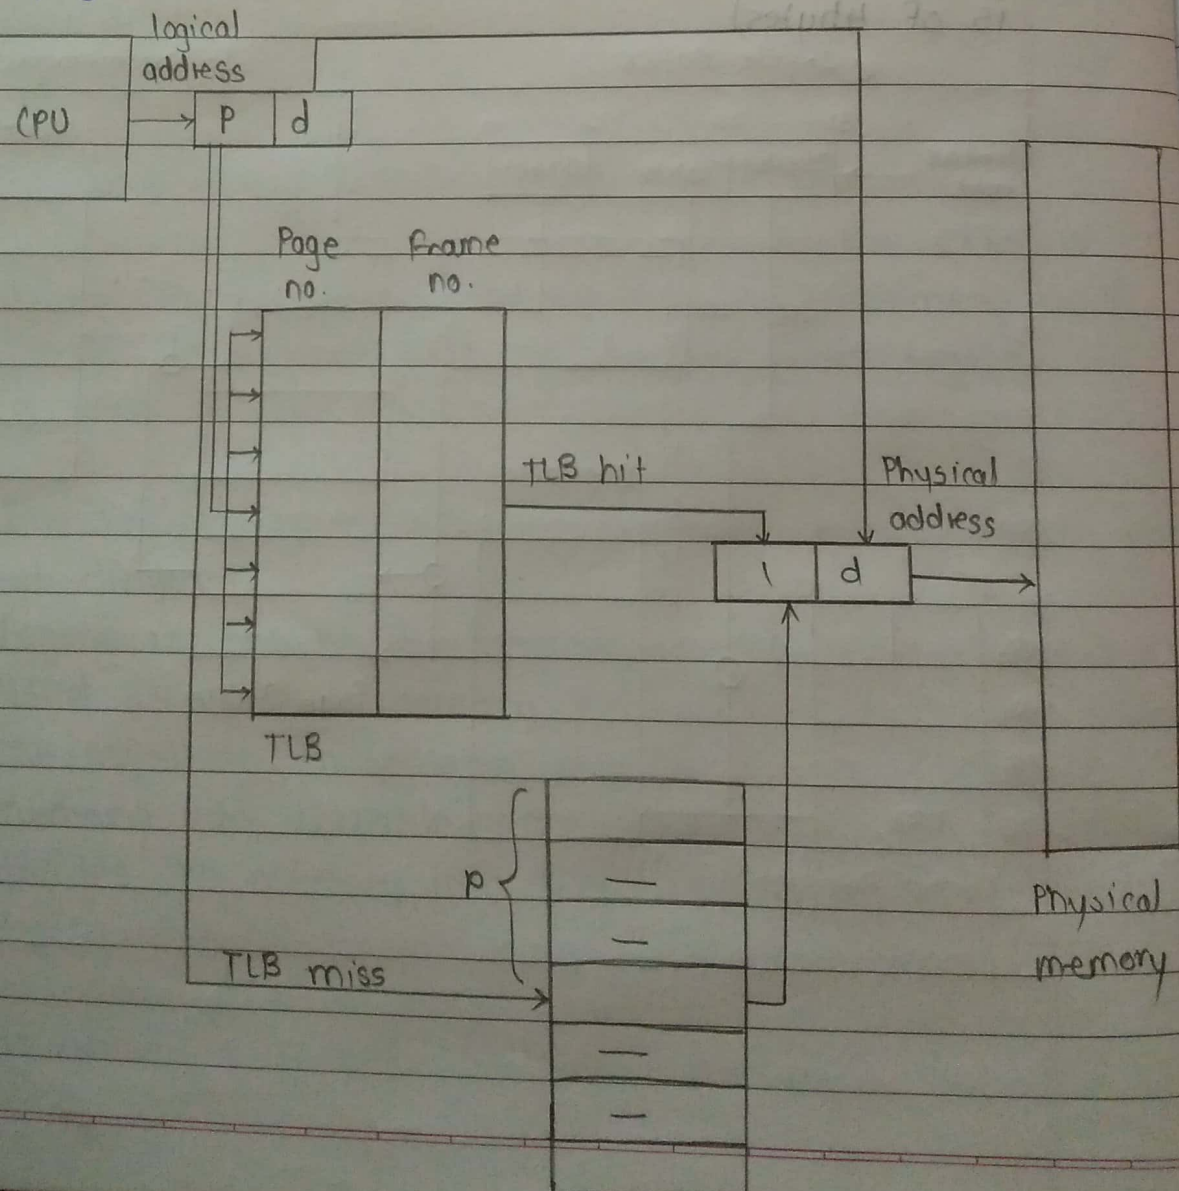 logical
address
CPU
p d
Page
no.
frame
no.
TLB hit
Physical
address
l d
TLB
p
TLB miss
Physical
memory